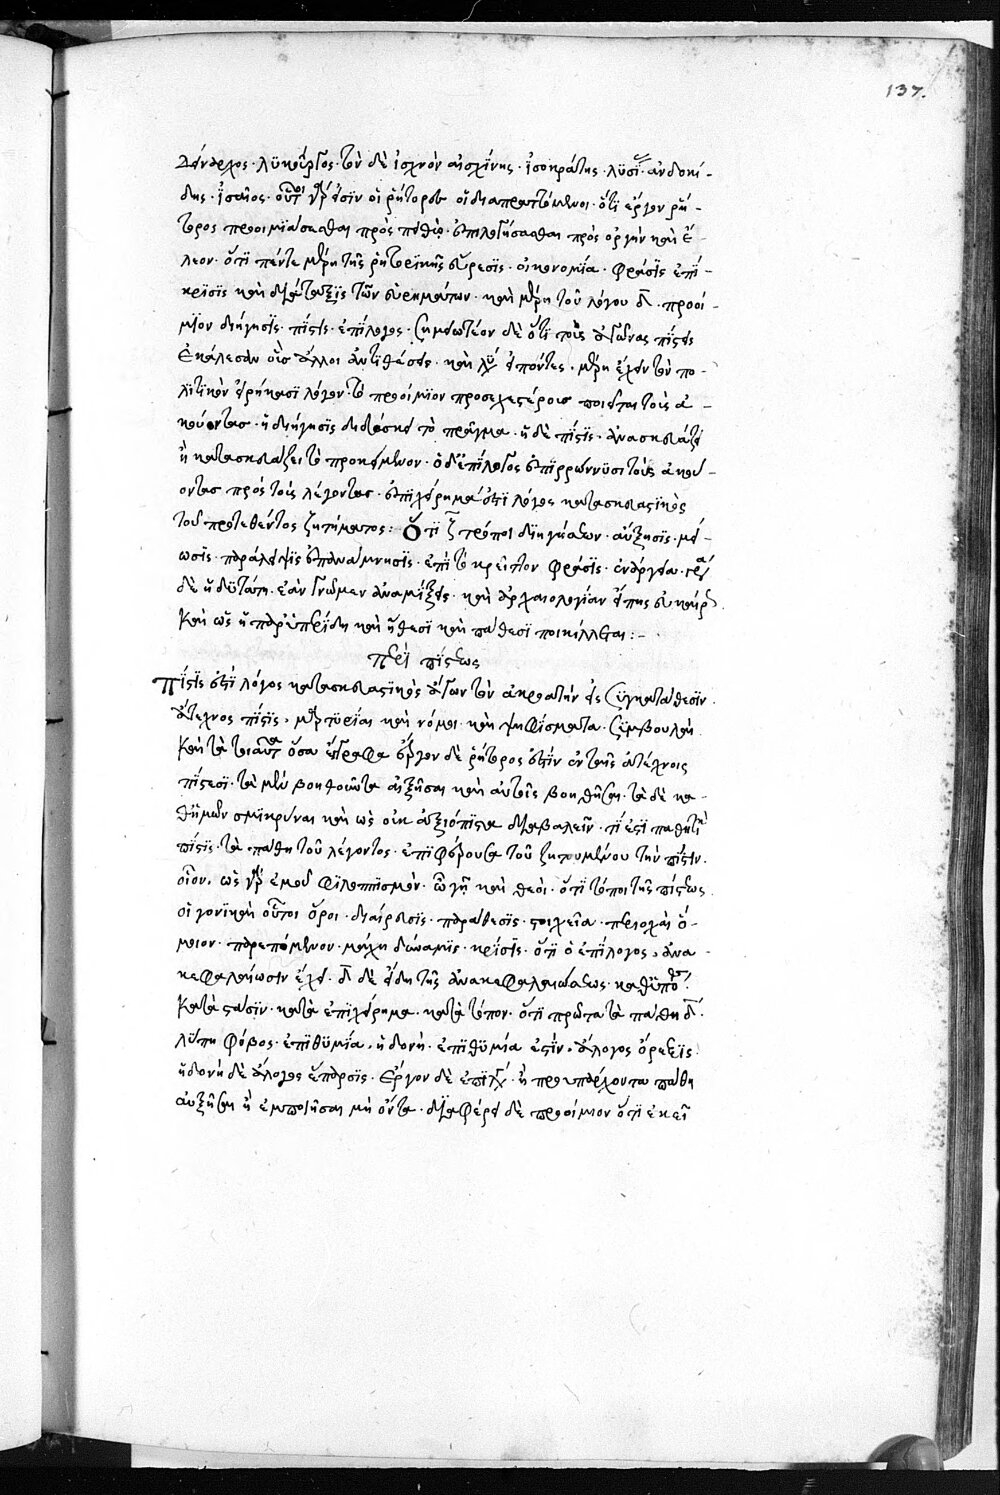 137.
Δείναρχος· λϋκοῦργος· τὸν δὲ ἰσχνὸν αἰσχίνης· ἰσοκράτης· λϋσί· ἀνδοκί-
δης· ἰσαῖος· οὗτοι γάρ εἰσϊν οἱ ῥήτορες οἱ διαπρεπόμενοι· ὅτι ἔργον ῥή-
τορος προοιμϊάσασθαι πρὸς πειθὼ· ἐπιλογήσασθαι πρὸς ὀργὴν καὶ ἔ-
λεον· ὅτϊ πέντε μέρη τῆς ῥητορϊκῆς εὕρεσϊς· οἰκονομία· φράσϊς ἐπί-
κρϊσϊς καὶ διάταξϊς τῶν εὑρημάτων· καὶ μέρη τοῦ λόγου δ· προοί-
μϊον διήγησϊς· πίστϊς· ἐπίλογος· σημειωτέον δὲ ὅτϊ τοὺς ἀγῶνας πίστεις
ἐκάλεσαν οὓς ἄλλοι ἀντιθέσεις· καὶ λύσεις εἰπόντες· μέρη ἔχειν τὸν πο-
λϊτϊκὸν εἰρήκασϊ λόγον· τὸ προοίμϊον προσεχεστέρους ποιεῖται τοὺς ἀ-
κούοντας· ἡ διήγησϊς διδάσκει τὸ πρᾶγμα· ἡ δὲ πίστϊς· ἀνασκευάζει
ἢ κατασκευάζει τὸ προκείμενον· ὁ δ' ἐπίλογος ἐπϊρρώννϋσι τοὺς ἀκού-
οντας πρὸς τοὺς λέγοντας· ἐπϊχείρημά ἐστϊ λόγος κατασκευαστϊκὸς
τοῦ προτεθέντος ζητήματος: Ὅτϊ ζ τρόποι διηγήσεων· αὔξησϊς· μεί-
ωσϊς· παράλειψϊς ἐπανάμνησϊς· ἐπὶ τὸ κρεῖττον φράσϊς· ἐνάργεια·
δὲ ἡδϋτάτη· ἐὰν γνώμην ἀναμίξεις· καὶ ἀρχαιολογίαν εἴπῃς
Καὶ ὡς ἡ παρ' εὐριπίδη καὶ ἤθεσϊ καὶ πάθεσϊ ποικίλλεται:-
περὶ πίστεως
Πίστϊς ἐστϊ λόγος κατασκευαστϊκὸς ἄγων τὸν ἀκροατὴν εἰς συγκατάθεσϊν·
ἄτεχνος πίστϊς· μαρτϋρίαι καὶ νόμοι· καὶ ψηφίσματα· σϋμβουλαὶ
Καὶ τὰ τοιαῦτα ὅσα ἔγγραφα ἔργον δὲ ῥήτορος ἐστϊν ἐν ταῖς ἀτέχνοις
πίστεσϊ· τὰ μὲν βοηθοῦντα αὐξῆσαι καὶ αὐτοῖς βοηθῆσαι· τὰ δὲ κα-
θ' ἡμῶν σμϊκρῦναι καὶ ὡς οὐκ ἀξιόπϊστα διαβαλεῖν· τί ἐστϊ παθητϊκὴ
πίστϊς· τὰ πάθη τοῦ λέγοντος· ἐπϊφέρουσα τοῦ ζητουμένου τὴν πίστϊν·
οἷον· ὡς γάρ ἐμοῦ φϊλιππϊσμόν· ὦ γῆ καὶ θεοί· ὅτϊ τόποι τῆς πίστεως
οἱ γονϊκοὶ οὗτοι ὅροι· διαίρεσϊς· παράθεσϊς· στοιχεῖα· περιοχαὶ ὅ-
μοιον· παρεπόμενον· μάχη δύναμϊς· κρίσϊς· ὅτϊ ὁ ἐπίλογος· ἀνα-
κεφαλαίωσιν ἔχει· δ δὲ εἴδη τῆς ἀνακεφαλαιώσεως· καθϋπο
Κατάστασϊν· κατὰ ἐπιχείρημα· κατὰ τόπον· ὅτϊ πρῶτα τὰ πάθη δ·
λύπη φόβος· ἐπιθϋμία· ἡδονή· ἐπιθϋμία ἐστϊν· ἄλογος ὄρεξϊς
ἡδονὴ δὲ ἄλογος ἔπαρσϊς· ἔργον δὲ ἐπιλόγου· ἢ προϋπάρχοντα πάθη
αὐξῆσαι ἢ ἐμποιῆσαι μὴ ὄντα· διαφέρει δὲ προοίμιον ὅτϊ ἐκεῖ